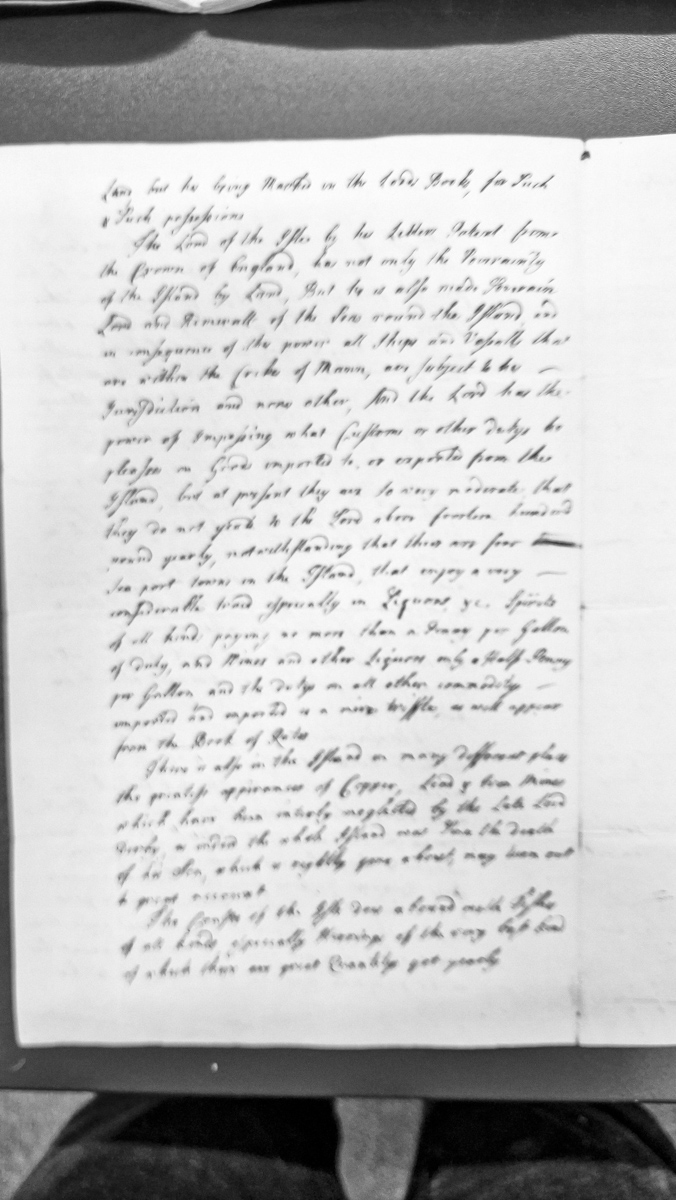 Land but his being Marked in the Lords Books, for Such
& Such possessions
The Lord of the Isles by his Letters Patent from
the Crown of England, has not only the Soveranity
of the Island by Land, But he is also made Soverain
Lord and Admerall of the Seas round the Island, and
in consequence of this power all Ships and Vessells that
are within the Circle of Mann, are Subject to his
Jurisdiction and none other, And the Lord has the
power of Impossing what Customs or other dutys he
pleases on Goods imported to, or exported from this
Island, but at present they are so very moderate, that
they do not yeald to the Lord above fourteen hundred
pound yearly, notwithstanding that there are four
Sea port towns in the Island, that enjoy a very
considerable trade especially in Liquors, &c. Spirits
of all kinds paying no more than a Penny per Gallon
of duty, and Wines and other Liquors only a Half Penny
per Gallon and the dutys on all other commoditys
imported and exported is a mere triffle, as will appear
from the Book of Rates
There is also in the Island in many different places
the greatest apperances of Copper, Lead & Iron Mines
which have been intirely neglected by the Late Lord
Derby, as indeed the whole Island was Since the death
of his Son, which if rightly gone about, may turn out
to great account
The Coasts of the Isle does abound with Fishes
of all kinds especially Herrings of the very best kind
of which there are great Quantitys got yearly